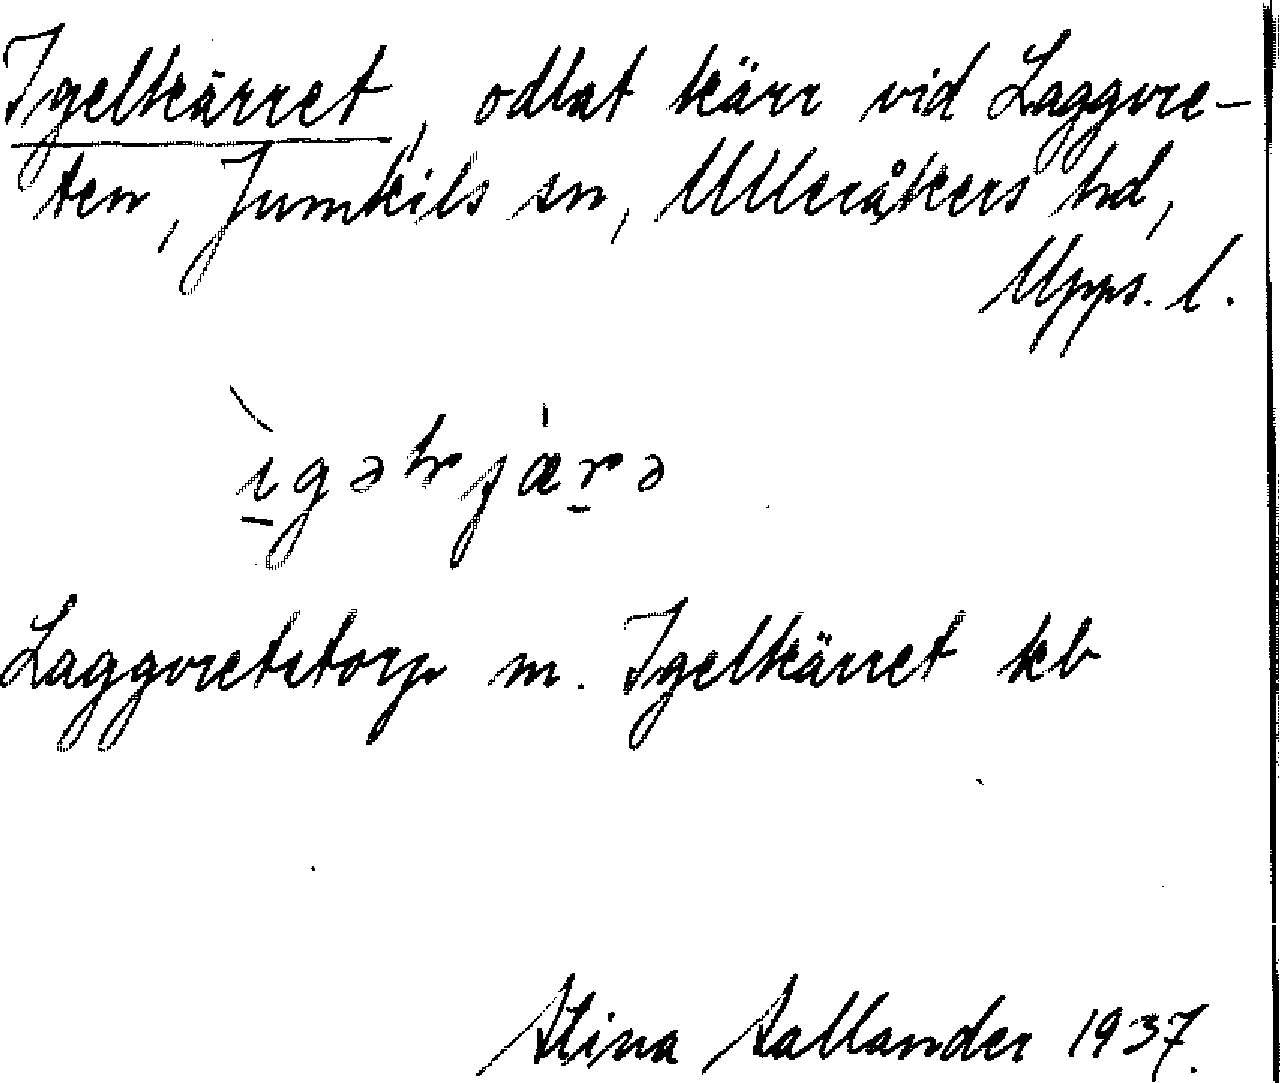 Igelkärret, odlat kärr vid Laggvre-
ten, Jumkils sn, Ulleråkers hd,
Upps. l.
Laggvretstorp m. Igelkärret kb
Stina Sallander 1937.